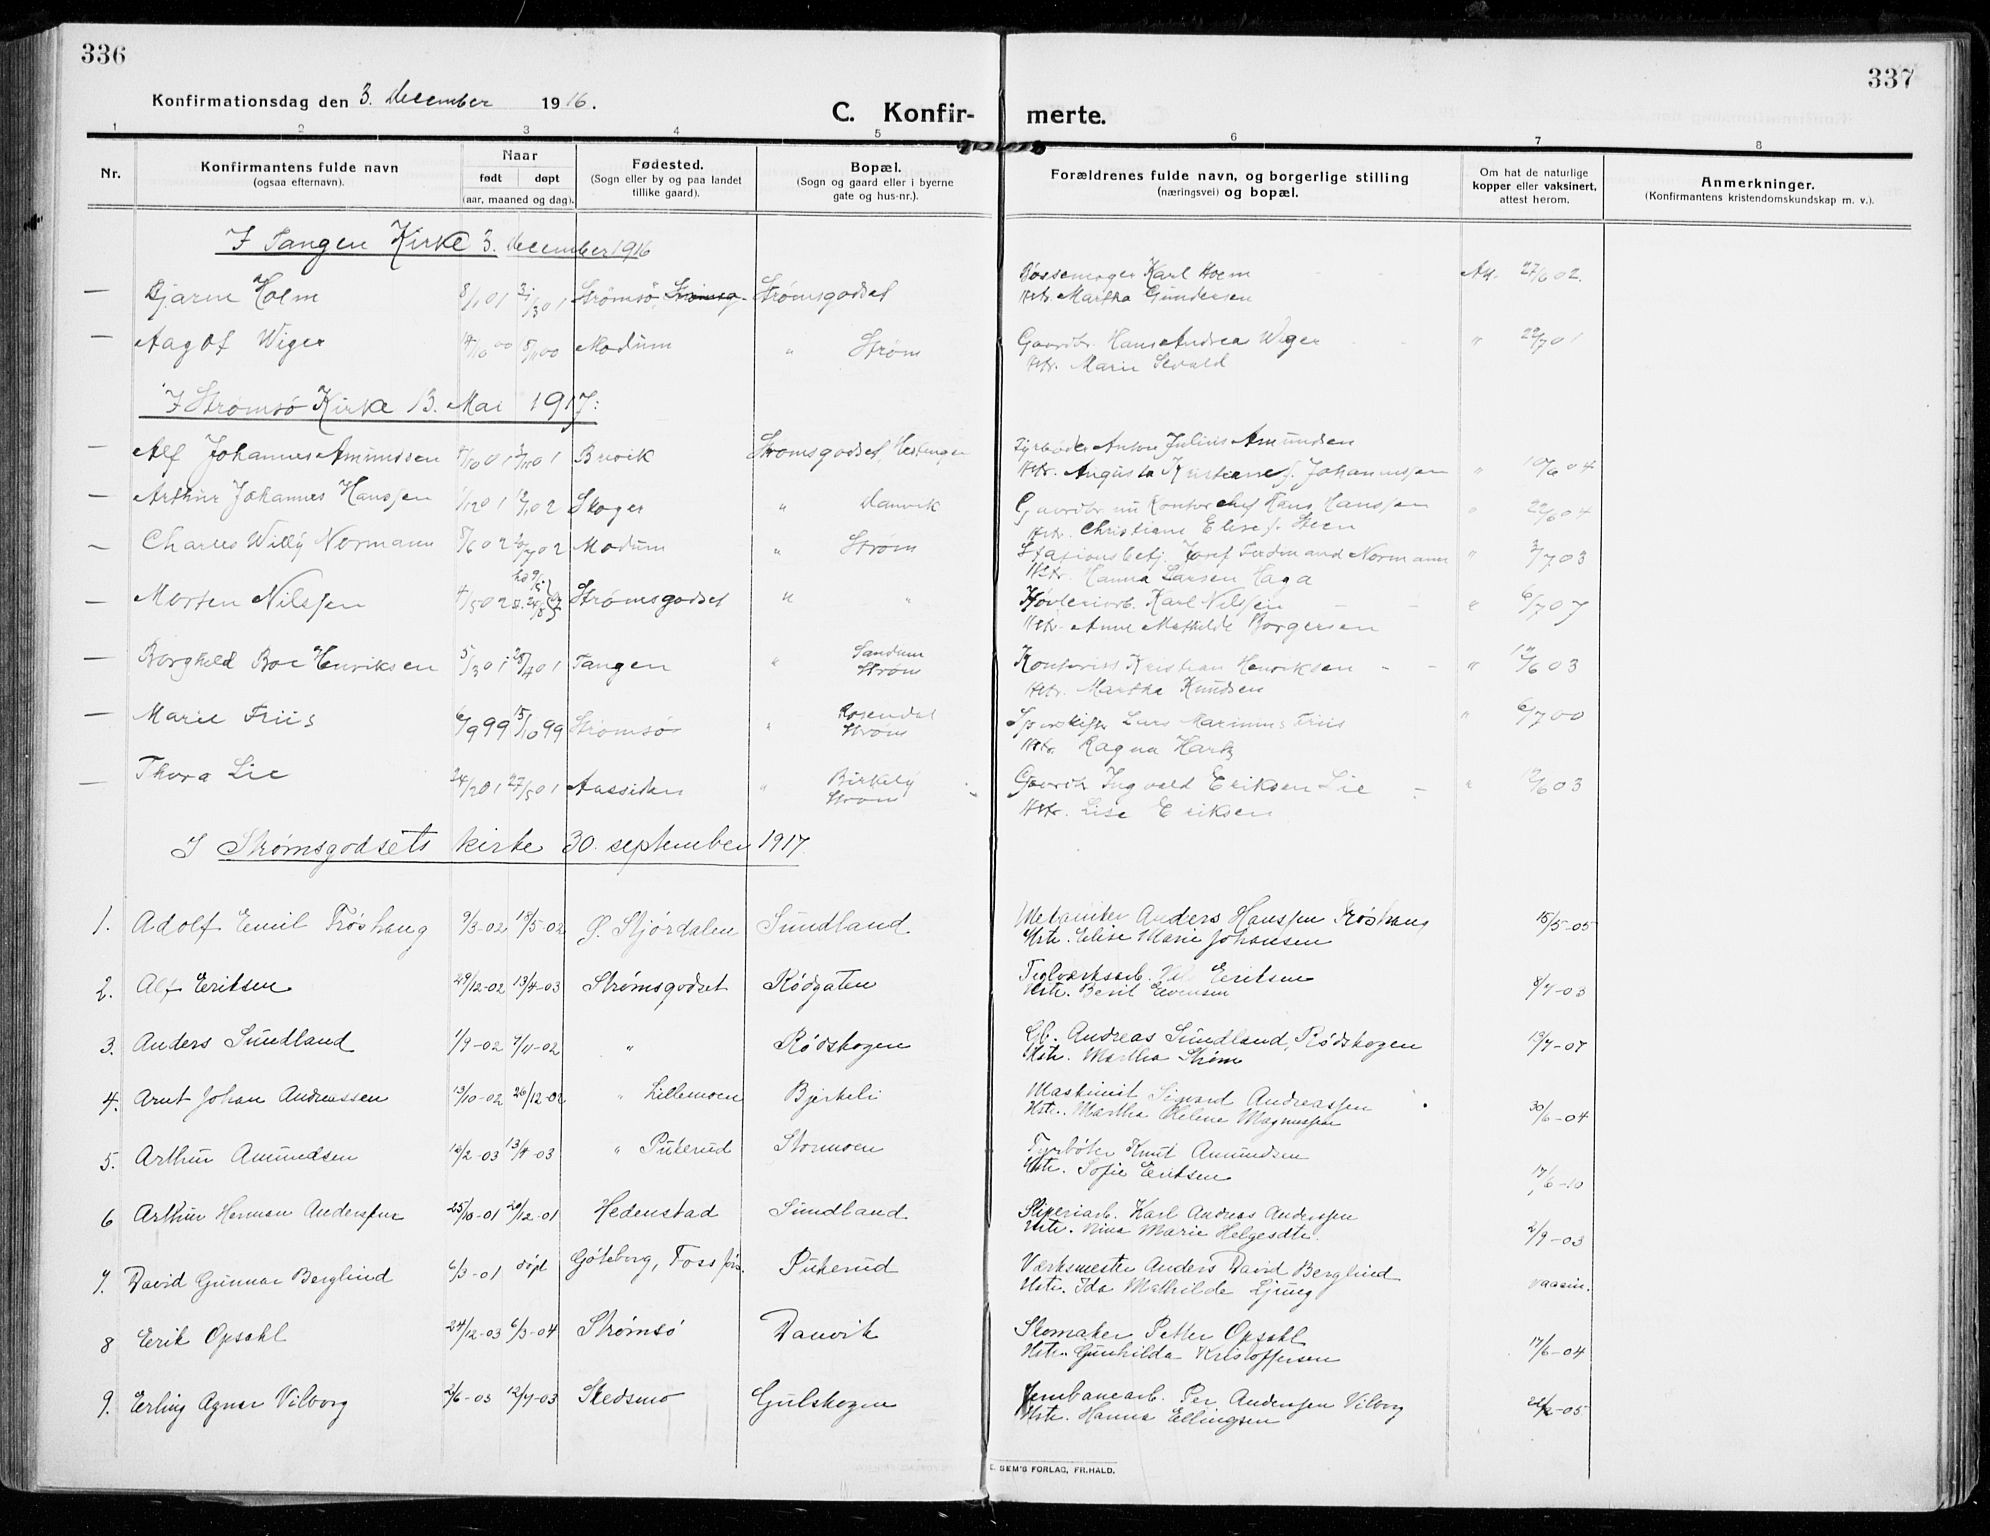 336
337
Konfirmationsdag den 3. December 1916.
C. Konfir-
merte.
1 2 3 4 5 6 7 8
Nr.
Konfirmantens fulde navn
(ogsaa efternavn).
Naar
født døpt
(aar, maaned og dag).
Fødested.
(Sogn eller by og paa landet
tillike gaard).
Bopæl.
(Sogn og gaard eller i byerne
gate og hus-nr.).
Forældrenes fulde navn, og borgerlige stilling
(næringsvei) og bopæl.
Om hat de naturlige
kopper eller vaksinert,
attest herom.
Anmerkninger.
(Konfirmantens kristendomskundskap m. v.).
I Tangen Kirke 3. December 1916
— Bjarne Holm 8/1 01 Strømsø Strømsgodset Karl Holm Att. 27/6 02.
Hstr. Martha Gundersen
— Aagot Wiger Modum " Strøm Gaardbr. Hans Andrea Wiger " 22/7 01
Hstr. Marie Sevald
I Strømsø Kirke 13. Mai 1917:
— Alf Johannes Amundsen Brevik Strømsgodset, Fyrbøder Anton Julius Amundsen
Hstr. Augusta Kristiane f. Johannessen " 10/6 04
— Arthur Johannes Hanssen 1/12 01 Skoger " Danvik Gaardbr. nu Kontorchef Hans Hanssen " 22/6 04
Hstr. Christiane Elise f. Steen
— Charles Willy Normann 8/6 02 20/7 02 Modum " Strøm Stationsbetj. Josef Ferdinand Normann " 3/7 03
Hstr. Hanna Larsen Haga
— Morten Nilssen 4/5 02 Strømsgodset " " Høvleriarb. Karl Nilssen " 6/7 07
Hstr. Anne Mathilde Borgersen
— Borghild Boe Henriksen 5/3 01 28/4 01 Tangen " Sandum
Strøm Kontorist Kristian Henriksen " 12/6 03
Hstr. Martha Knudsen
— Marie Friis 6/9 99 15/10 99 Strømsø " Rosendal
Strøm Lars Marinius Friis " 6/7 00
Hstr. Ragna Hartz
— Thora Lie 24/2 01 27/5 01 Aassiden " Birkely
Strøm Gaardbr. Ingvald Eriksen Lie " 12/6 03
Hstr. Lise Eriksen
I Strømsgodsets kirke 30. september 1917.
1. Adolf Emil Frøshaug 9/3-02 18/5-02 Ø. Stjørdalen Sundland Anders Hanssen Frøshaug 15/5-05
Hstr. Elise Marie Johansen
2. Alf Eriksen 29/12-02 13/4-03 Strømsgodset Rødgaten Teglværksarb. Eriksen 8/7-03
Hstr. Beril Evensen
3. Anders Sundland 1/9-02 9/11-02 " Rødskogen Gb. Andreas Sundland, Rødskogen 13/7-07
Hstr. Martha Strøm
4. Arnt Johan Andreassen 13/10-02 26/12-02 " Lillemoen Bjerkeli Maskinist Sigvard Andreassen 30/6-04
Hstr. Martha Helene Magnussen
5. Arthur Amundsen 12/2-03 13/4-03 " Puterud Stormoen Fyrbøter Knut Amundsen
Hstr. Sofie Eriksen 17/6-10
6 Arthur Herman Anderssen 25/10-01 26/12-01 Hedenstad Sundland Sliperiarb. Karl Andreas Anderssen
Hstr. Nina Marie Helgesdtr. 2/9-03
7. David Gunnar Berglind 6/3-01 døpt Göteborg, Foss Puterud Værksmester Anders David Berglind
Hstr. Ida Mathilde Ljung vaccin.
8 Erik Opsahl 24/12-03 6/3-04 Strømsø Danvik Skomaker Petter Opsahl
Hstr. Gunhilda Kristoffersen 17/6-04
9. Erling Agnar Vilberg 2/6-03 12/7-03 Skedsmo Gulskogen Jernbanearb. Per Anderssen Vilberg
Hstr. Hanna Ellingsen
E. SEM'S FORLAG, FR.HALD.